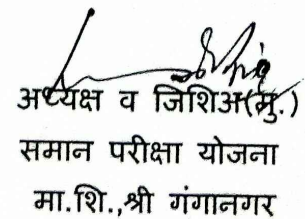 अध्यक्ष व जिशिअ(मु.)
समान परीक्षा योजना
मा.शि.,श्री गंगानगर